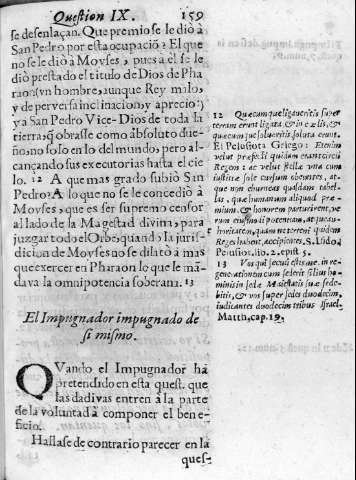 Question IX. 159
se desenlaçan. Que premio se le diò à
San Pedro por esta ocupaciõ? El que
no se le diò à Moyses, pues a el se le
diò prestado el titulo de Dios de Pha
raon (vn hombre, aunque Rey malo,
y de perversa inclinacion, y aprecio:)
y a San Pedro Vice-Dios de toda la
tierra; q̃ obrasse como absoluto due-
ño, no solo en lo del mundo, pero al-
cançando sus executorias hasta el cie
lo. 12 A que mas grado subiò San
Pedro? A lo que no se le concediò à
Moyses, que es ser supremo censor
al lado de la Magestad divina, para
juzgar todo el Orbe, quando la juris-
dicion de Moyses no se dilatò a mas
que exercer en Pharaon lo que le mã-
dava la omnipotencia soberana. 13
El Impugnador impugnado de
si mismo.
QVando el Impugnador ha
pretendido en esta quest. que
las dadivas entren à la parte
de la voluntad à componer el bene-
ficio.
Hallase de contrario parecer en la
ques-
12 Quæcumque ligaveritis super
terram erunt ligata, & in cælis, &
quæcumque solveritis soluta erunt.
El Pelusiota Griego: Etenim
velut præfecti quidam
iustitiæ sole cursum obeuntes, at-
que non eburneas quasdam tabel-
las, quæ humanum aliquod præ-
mium, & honorem parturiunt, ve-
rum
thoritatem, quam ne terreni quidem
Reges habent, accipiones. S. Isido.
Pelusios. lio. 2. epist. 5.
13 Vos qui secuti estis me, in re-
generatione cum sederit filius ho-
minis in sede Maiestatis suæ sede-
bitis, & vos super sedes duodecim,
iudicantes duodecim tribus Israel.
Matth. cap. 19.